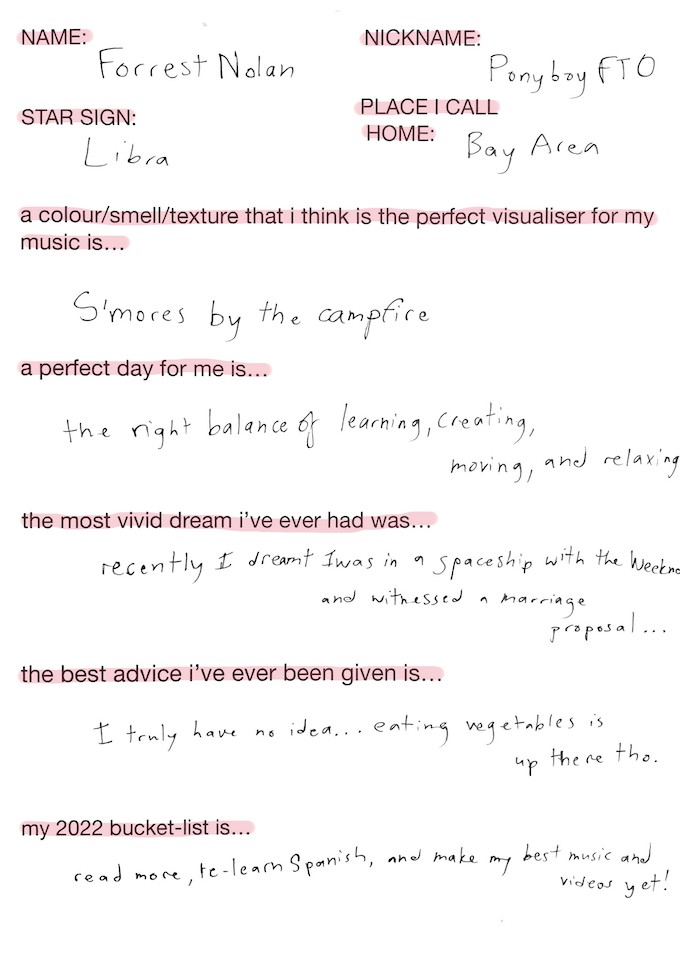 NAME:
Forrest Nolan
NICKNAME:
Ponyboy FTO
STAR SIGN:
Libra
PLACE I CALL
HOME:
Bay Area
a colour/smell/texture that i think is the perfect visualiser for my
music is...
S'mores by the campfire
a perfect day for me is...
the right balance of learning, creating,
moving, and relaxing
the most vivid dream i've ever had was...
recently I dreamt I was in a spaceship with the Weekn
and witnessed a marriage
proposal...
the best advice i've ever been given is...
I truly have no idea... eating vegetables is
up there tho.
my 2022 bucket-list is...
read more, re-learn Spanish, and make my best music and
videos yet!